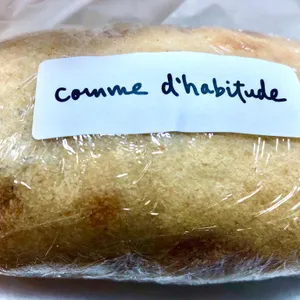 comme d'habitude